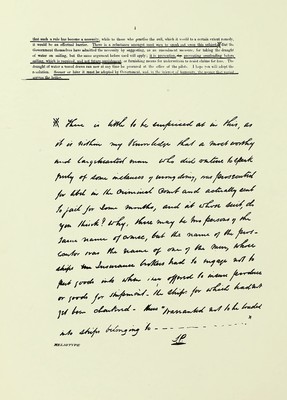 4
that such a rule has become a necessity, while to those who practise the evil, which it could to a certain extent remedy,
it would be an effectual barrier. There is a reluctance amongst most men to speak out upon this subject; ※ that the
Government themselves have admitted the necessity by suggesting, as an amendment measure, for taking the draught
of water on sailing, but the same argument before used will apply; it is prevention, viz. preventing overloading before
sailing, which is required, and not future punishment or furnishing means for underwriters to resist claims for loss. The
draught of water a vessel draws can now at any time be procured at the office of the pilots. I hope you will adopt the
resolution. Sooner or later it must be adopted by Government, and, in the interest of humanity, the sooner that period
arrives the better.
※ There is little to be surprised at in this, as
it is within my knowledge that a most worthy
and large hearted man who did venture to speak
freely of some instances of wrongdoing, was prosecuted
for libel in the Criminal Court and actually sent
to jail for some months, and at whose suit do
you think? Why, there may be two persons of the
same name of course, but the name of the pros-
ecutor was the name of one of the men, whose
ships Insurance brokers had to engage not to
put goods into when offered to insure produce
or goods for shipment. The ships for which had not
yet been chartered - thus "warranted not to be loaded
into ships belonging to - - - - - - - - - - "
SP
HELIOTYPE